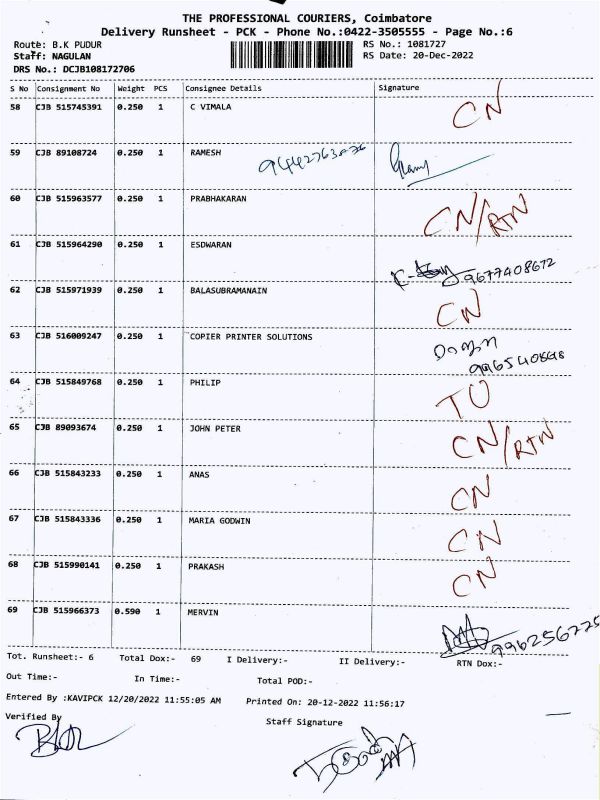 THE PROFESSIONAL COURIERS, Coimbatore
Delivery Runsheet - PCK - Phone No.:0422-3505555 - Page No.:6
Route: B.K PUDUR RS No.: 1081727
Staff: NAGULAN RS Date: 20-Dec-2022
DRS No.: DCJB108172706
S No Consignment No Weight PCS Consignee Details Signature
58 CJB 515745391 0.250 1 C VIMALA CN
59 CJB 89108724 0.250 1 RAMESH
60 CJB 515963577 0.250 1 PRABHAKARAN CN/RTN
61 CJB 515964290 0.250 1 ESDWARAN 9677408672
62 CJB 515971939 0.250 1 BALASUBRAMANAIN CN
63 CJB 516009247 0.250 1 COPIER PRINTER SOLUTIONS
64 CJB 515849768 0.250 1 PHILIP TO
65 CJB 89093674 0.250 1 JOHN PETER CN/RTN
66 CJB 515843233 0.250 1 ANAS CN
67 CJB 515843336 0.250 1 MARIA GODWIN CN
68 CJB 515990141 0.250 1 PRAKASH CN
69 CJB 515966373 0.590 1 MERVIN 996256775
Tot. Runsheet:- 6 Total Dox:- 69 I Delivery:- II Delivery:- RTN Dox:-
Out Time:- In Time:- Total POD:-
Entered By :KAVIPCK 12/20/2022 11:55:05 AM Printed On: 20-12-2022 11:56:17
Verified By Staff Signature